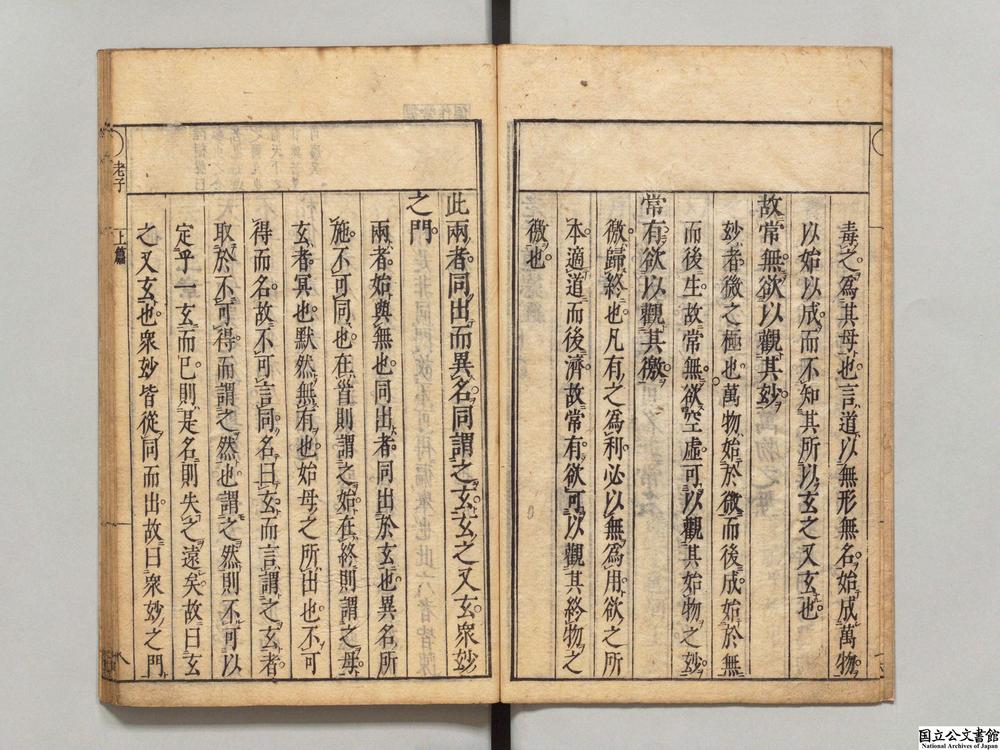 毒之爲其母也言道以無形無名始成萬物
以始以成而不知其所以玄之又玄也
故常無欲以觀其妙
妙者微之極也萬物始於微而後成始於無
而後生故常無欲空虛可以觀其始物之妙
常有欲以觀其徼
徼歸終也凡有之爲利必以無爲用欲之所
本適道而後濟故常有欲可以觀其終物之
徼也
此兩者同出而異名同謂之玄玄之又玄衆妙
之門
兩者始與無也同出者同出於玄也異名所
施不可同也在首則謂之始在終則謂之母
玄者冥也默然無有也始母之所出也不可
得而名故不可言同名曰玄而言謂之玄者
取於不可得而謂之然也謂之然則不可以
定乎一玄而已則是名則失之遠矣故曰玄
之又玄也衆妙皆從同而出故曰衆妙之門
老子
上篇
八
国立公文書館
National Archives of Japan